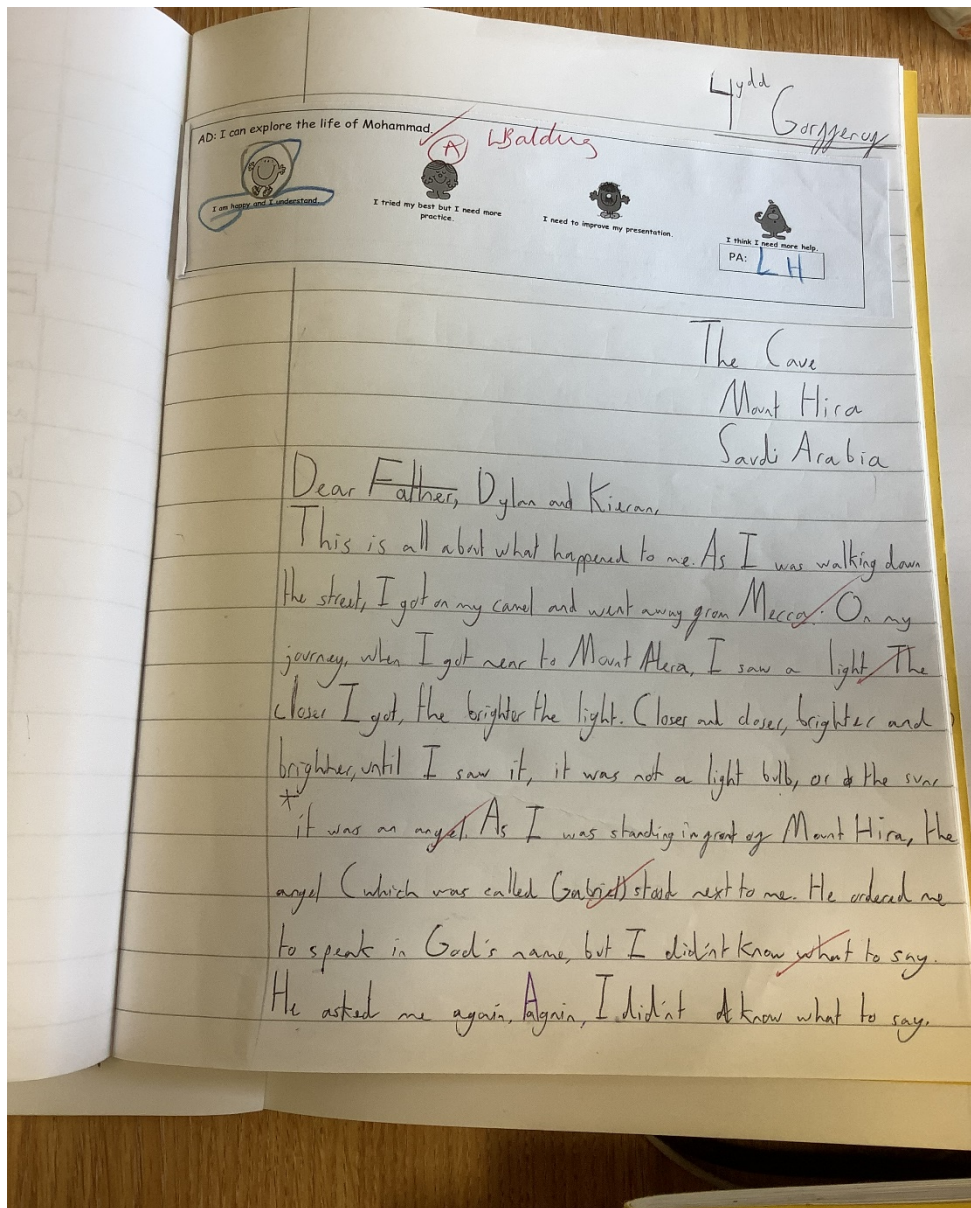 4ydd
AD: I can explore the life of Mohammad.
A
I am happy and I understand.
I tried my best but I need more
practice.
I need to improve my presentation.
I think I need more help.
PA: L H
The Cave
Mount Hira
Saudi Arabia
Dear Father, Dylan and Kieran,
This is all about what happened to me. As I was walking down
the street, I got on my camel and went away grom Mecca. On my
journey, when I got near to Mount Hera, I saw a light. The
closer I got, the brighter the light. Closer and closer, brighter and
brighter, until I saw it, it was not a light bulb, or the sun
* it was an angel. As I was standing in gront og Mount Hira, the
angel (which was called Gabriel) stood next to me. He ordered me
to speak in God's name, but I did'nt know what to say.
He asked me again, Again, I did'nt know what to say.